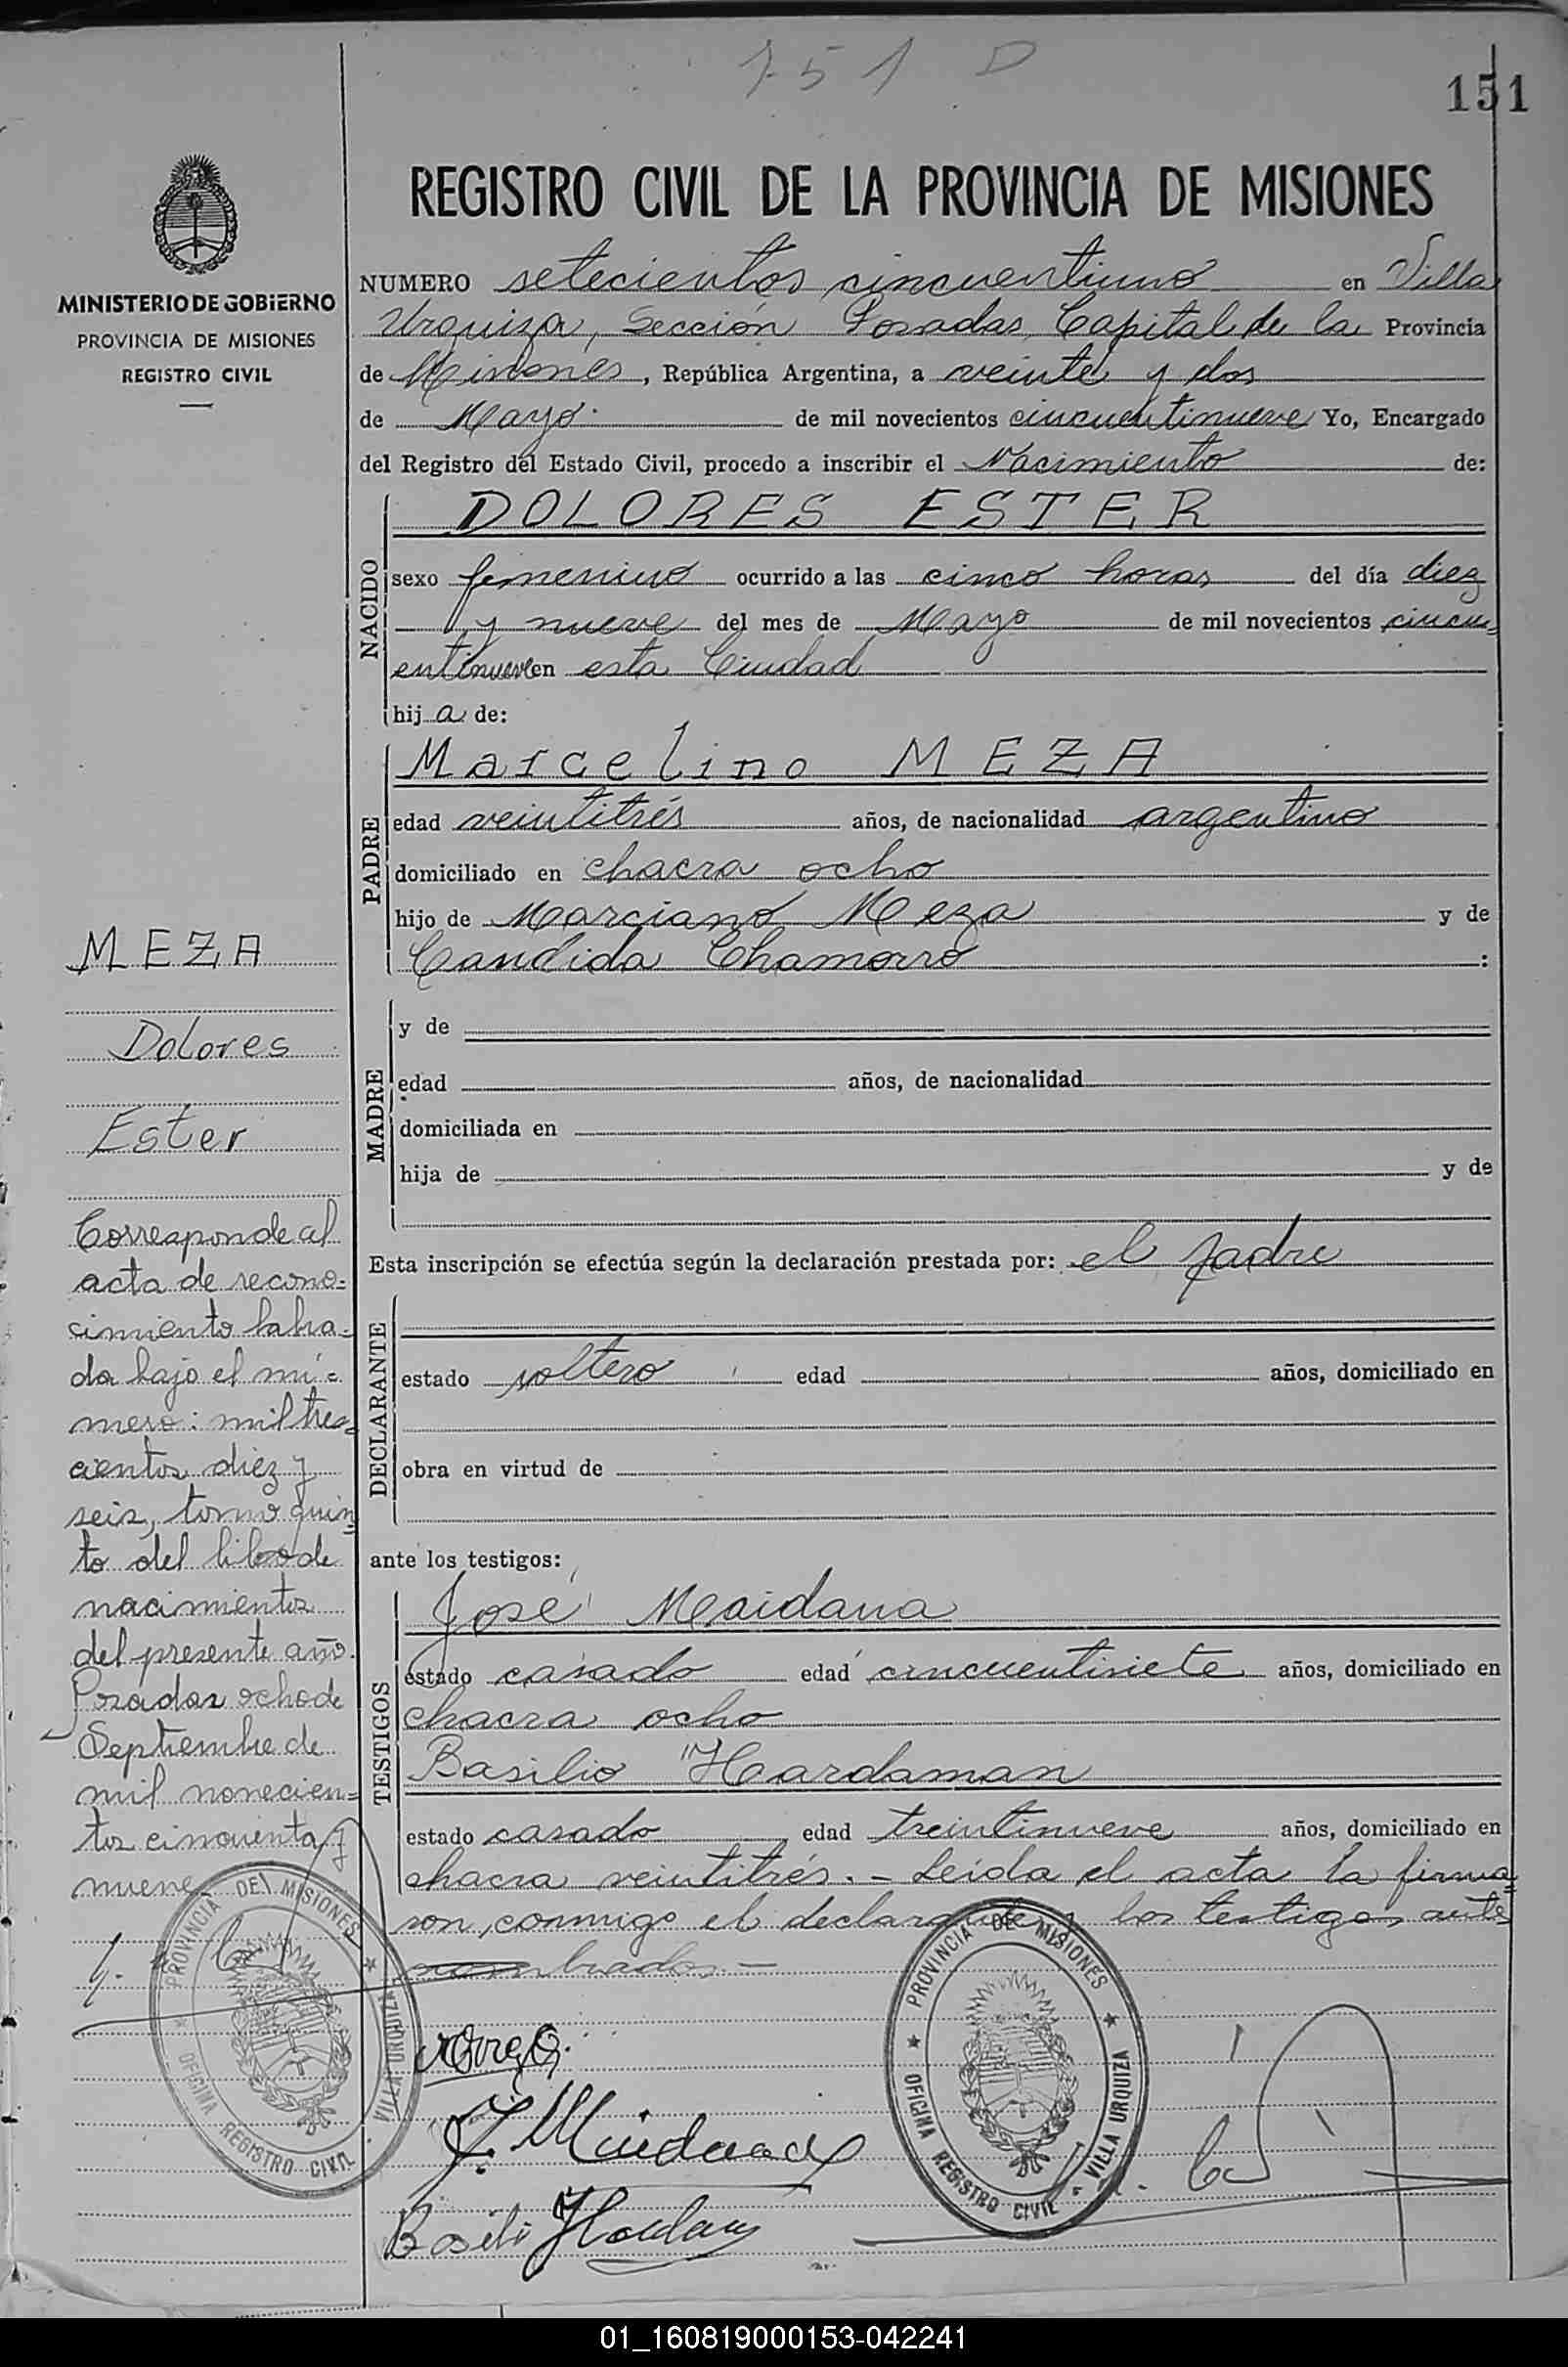 751 D
151
REGISTRO CIVIL DE LA PROVINCIA DE MISIONES
MINISTERIO DE GOBIERNO
PROVINCIA DE MISIONES
REGISTRO CIVIL
NUMERO setecientos cincuentiuno en Villa
Urquiza, Sección Posadas, Capital de la Provincia
de Misiones, República Argentina, a veinte y dos
de Mayo de mil novecientos cincuentinueve Yo, Encargado
del Registro del Estado Civil, procedo a inscribir el Nacimiento de:
NACIDO
DOLORES ESTER
sexo femenino ocurrido a las cinco horas del día diez
y nueve del mes de Mayo de mil novecientos cincu
entinueve en esta Ciudad
hija de:
PADRE
Marcelino MEZA
edad veintitrés años, de nacionalidad argentino
domiciliado en chacra ocho
hijo de Marciano Meza y de
Candida Chamorro :
MADRE
y de
edad años, de nacionalidad
domiciliada en
hija de y de
Esta inscripción se efectúa según la declaración prestada por: el padre
DECLARANTE
estado soltero edad años, domiciliado en
obra en virtud de
ante los testigos:
TESTIGOS
José Maidana
estado casado edad cincuentisiete años, domiciliado en
chacra ocho
Basilio Hardaman
estado casado edad treintinueve años, domiciliado en
chacra veintitrés.- Leída el acta la firma=
ron, conmigo el declarante y los testigos ante
nombrados.-
J. Maidana
Basili
MEZA
Dolores
Ester
Corresponde al
acta de recono=
cimiento labra=
da bajo el nú=
mero: mil tres
cientos diez y
seis, tomo quin=
to del libro de
nacimientos
del presente año.
Posadas ocho de
Septiembre de
mil novecien=
tos cincuenta y
nueve
PROVINCIA DE MISIONES ★ VILLA URQUIZA - OFICINA REGISTRO CIVIL ★
PROVINCIA DE MISIONES ★ VILLA URQUIZA - OFICINA REGISTRO CIVIL ★
01_160819000153-042241